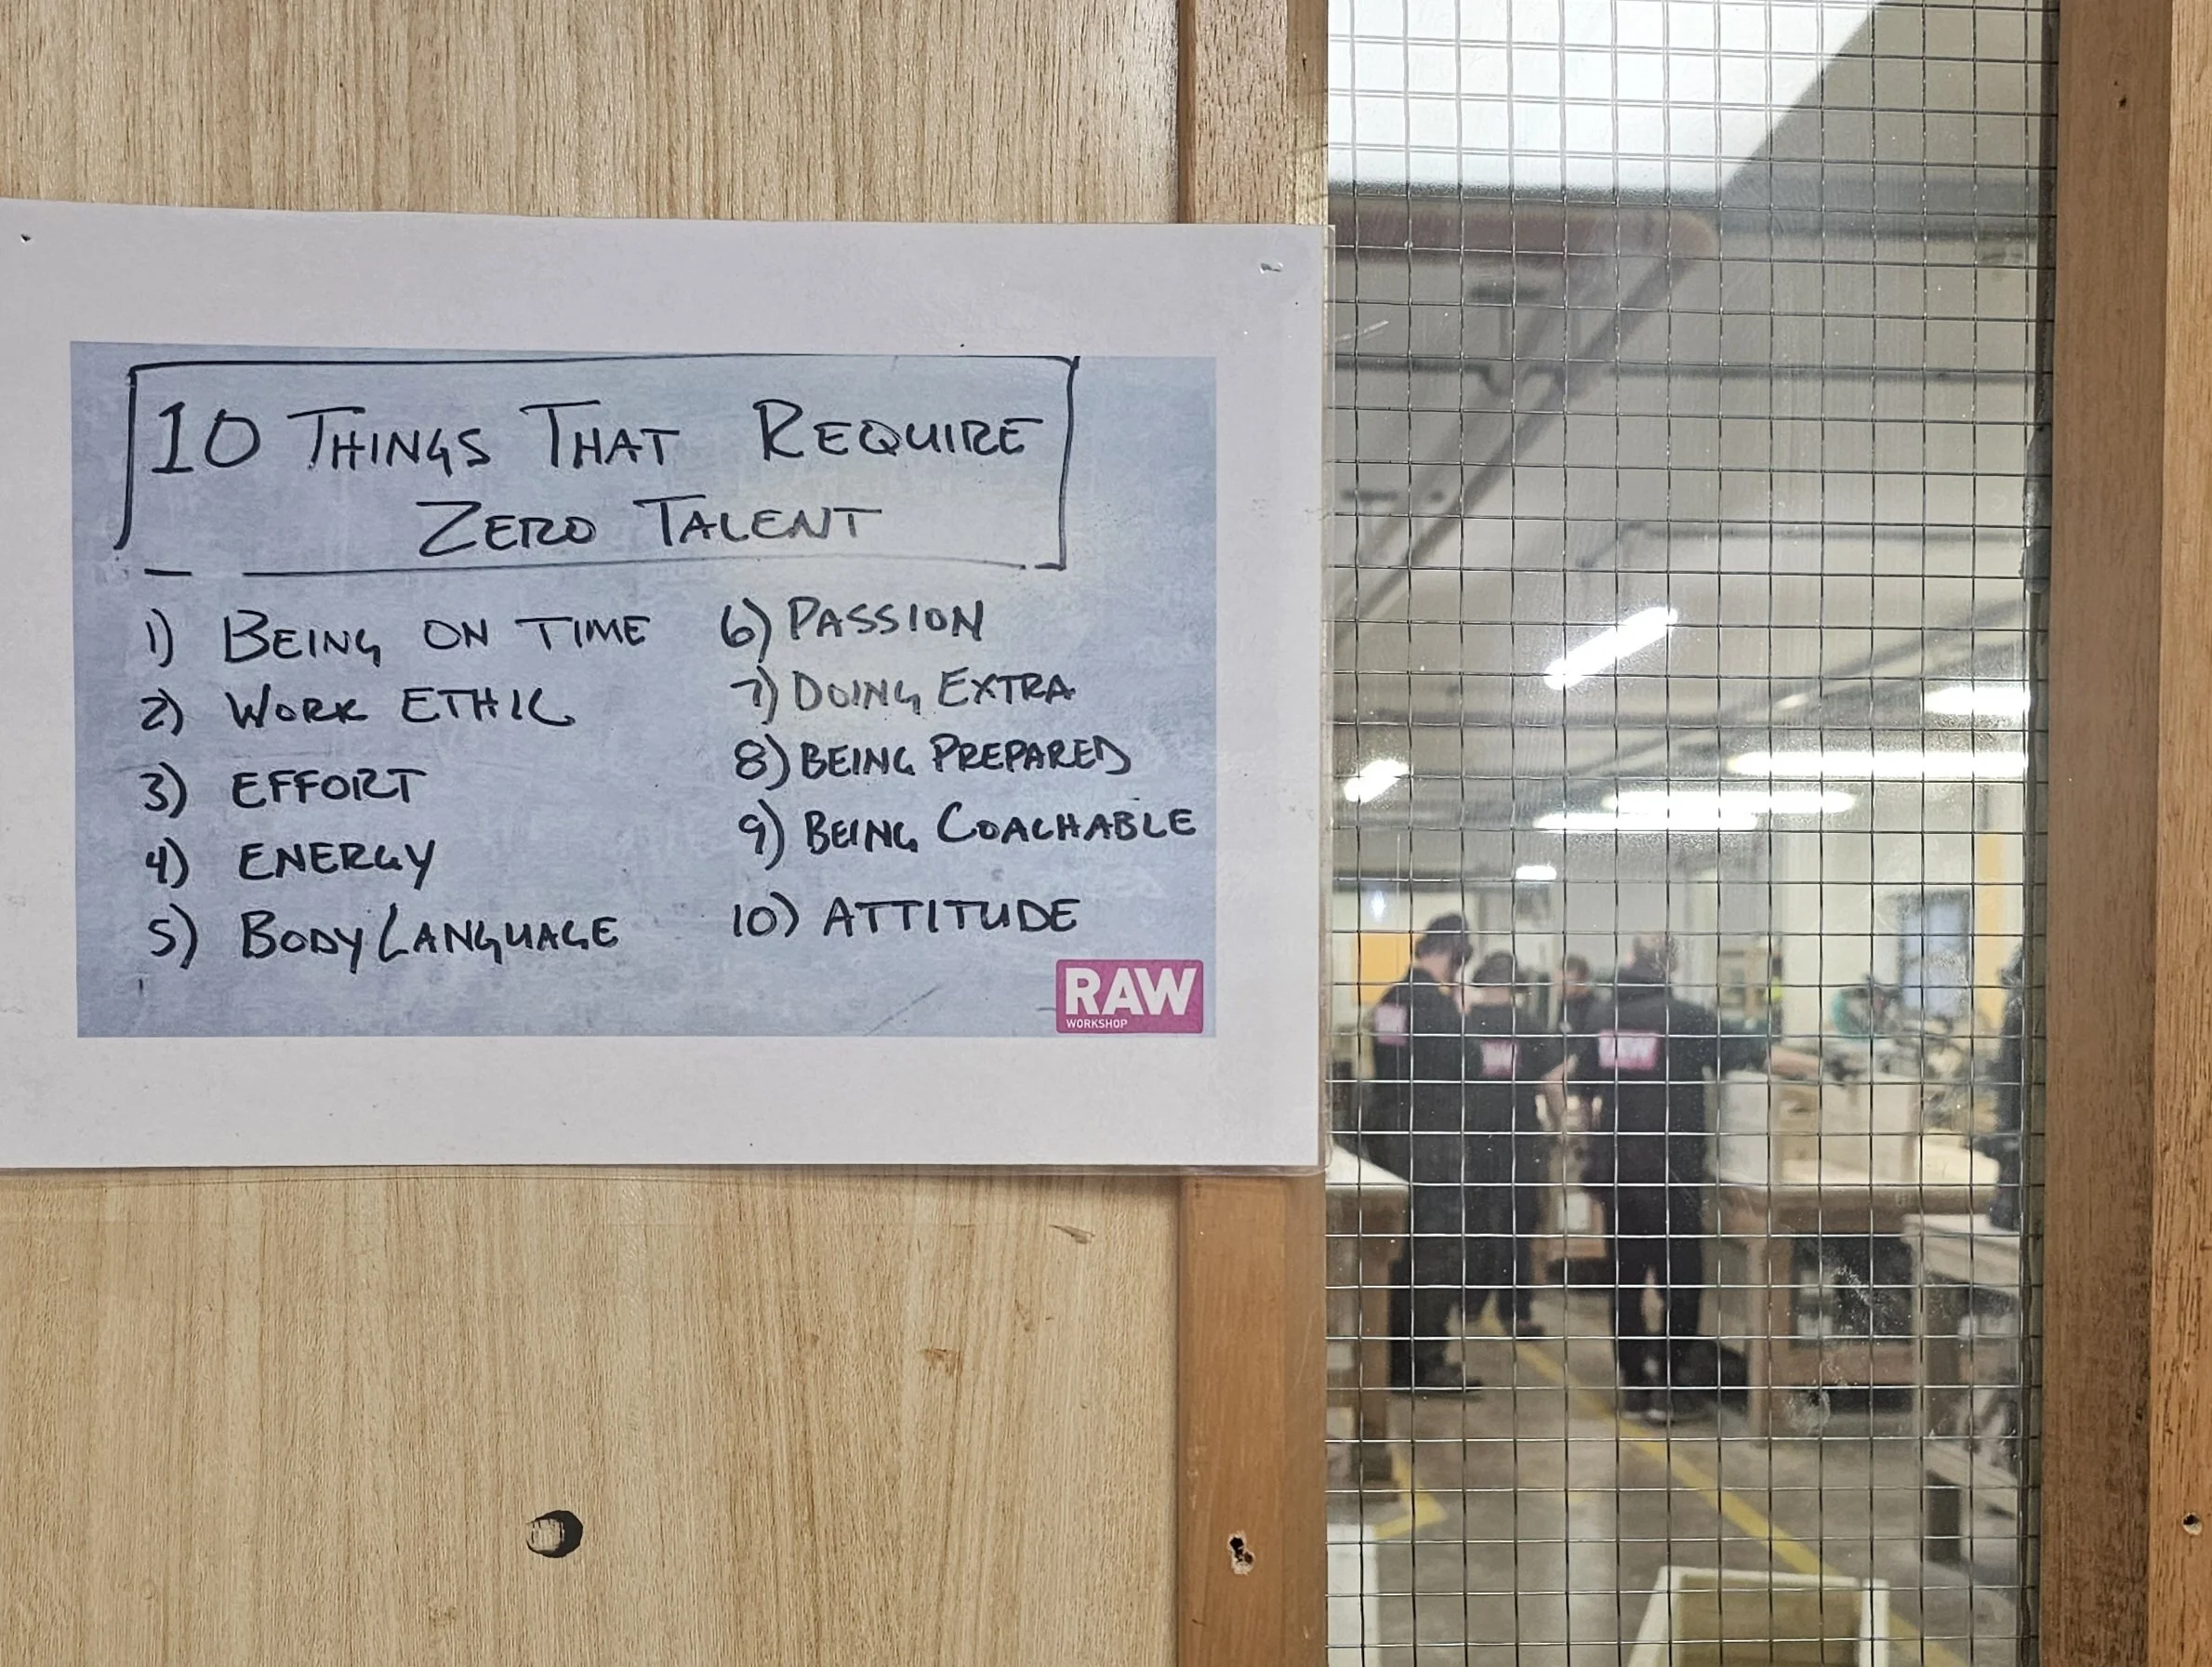 10 THINGS THAT REQUIRE
ZERO TALENT
1) BEING ON TIME
2) WORK ETHIC
3) EFFORT
4) ENERGY
5) BODY LANGUAGE
6) PASSION
7) DOING EXTRA
8) BEING PREPARED
9) BEING COACHABLE
10) ATTITUDE
RAW
WORKSHOP
RAW